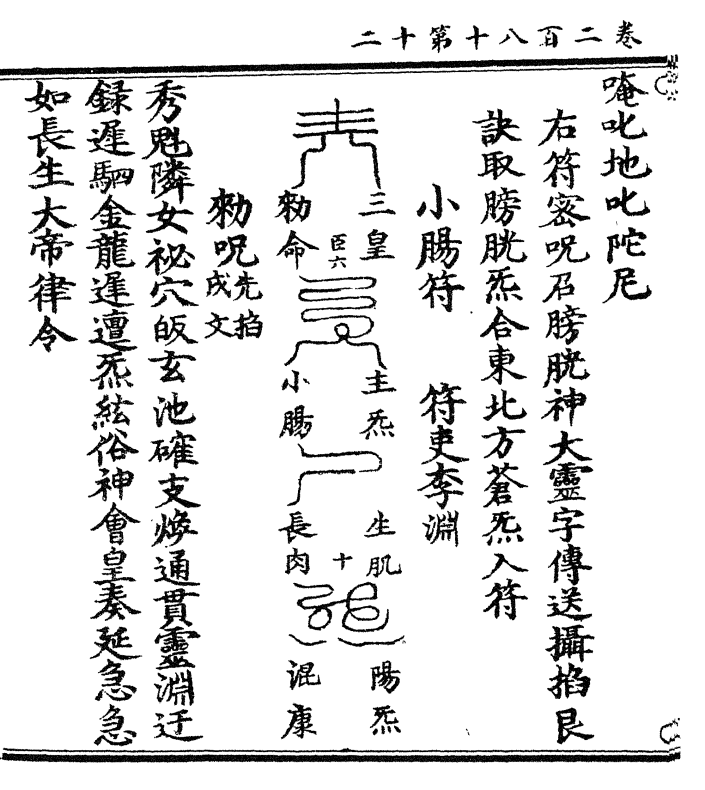 卷二百八十第十二
唵叱地叱陀尼
右符密呪召膀胱神大靈字傳送攝掐艮
訣取膀胱炁合東北方蒼炁入符
小腸符　符吏李淵
三皇　主炁　生肌　陽炁
臣六　十
勑命　小腸　長肉　混康
勑呪先掐戌文
秀魁隣女祕穴皈玄池確支煥通貫靈淵迂
録遲駟金龍遲邅炁絃俗神會皇奏延急急
如長生大帝律令